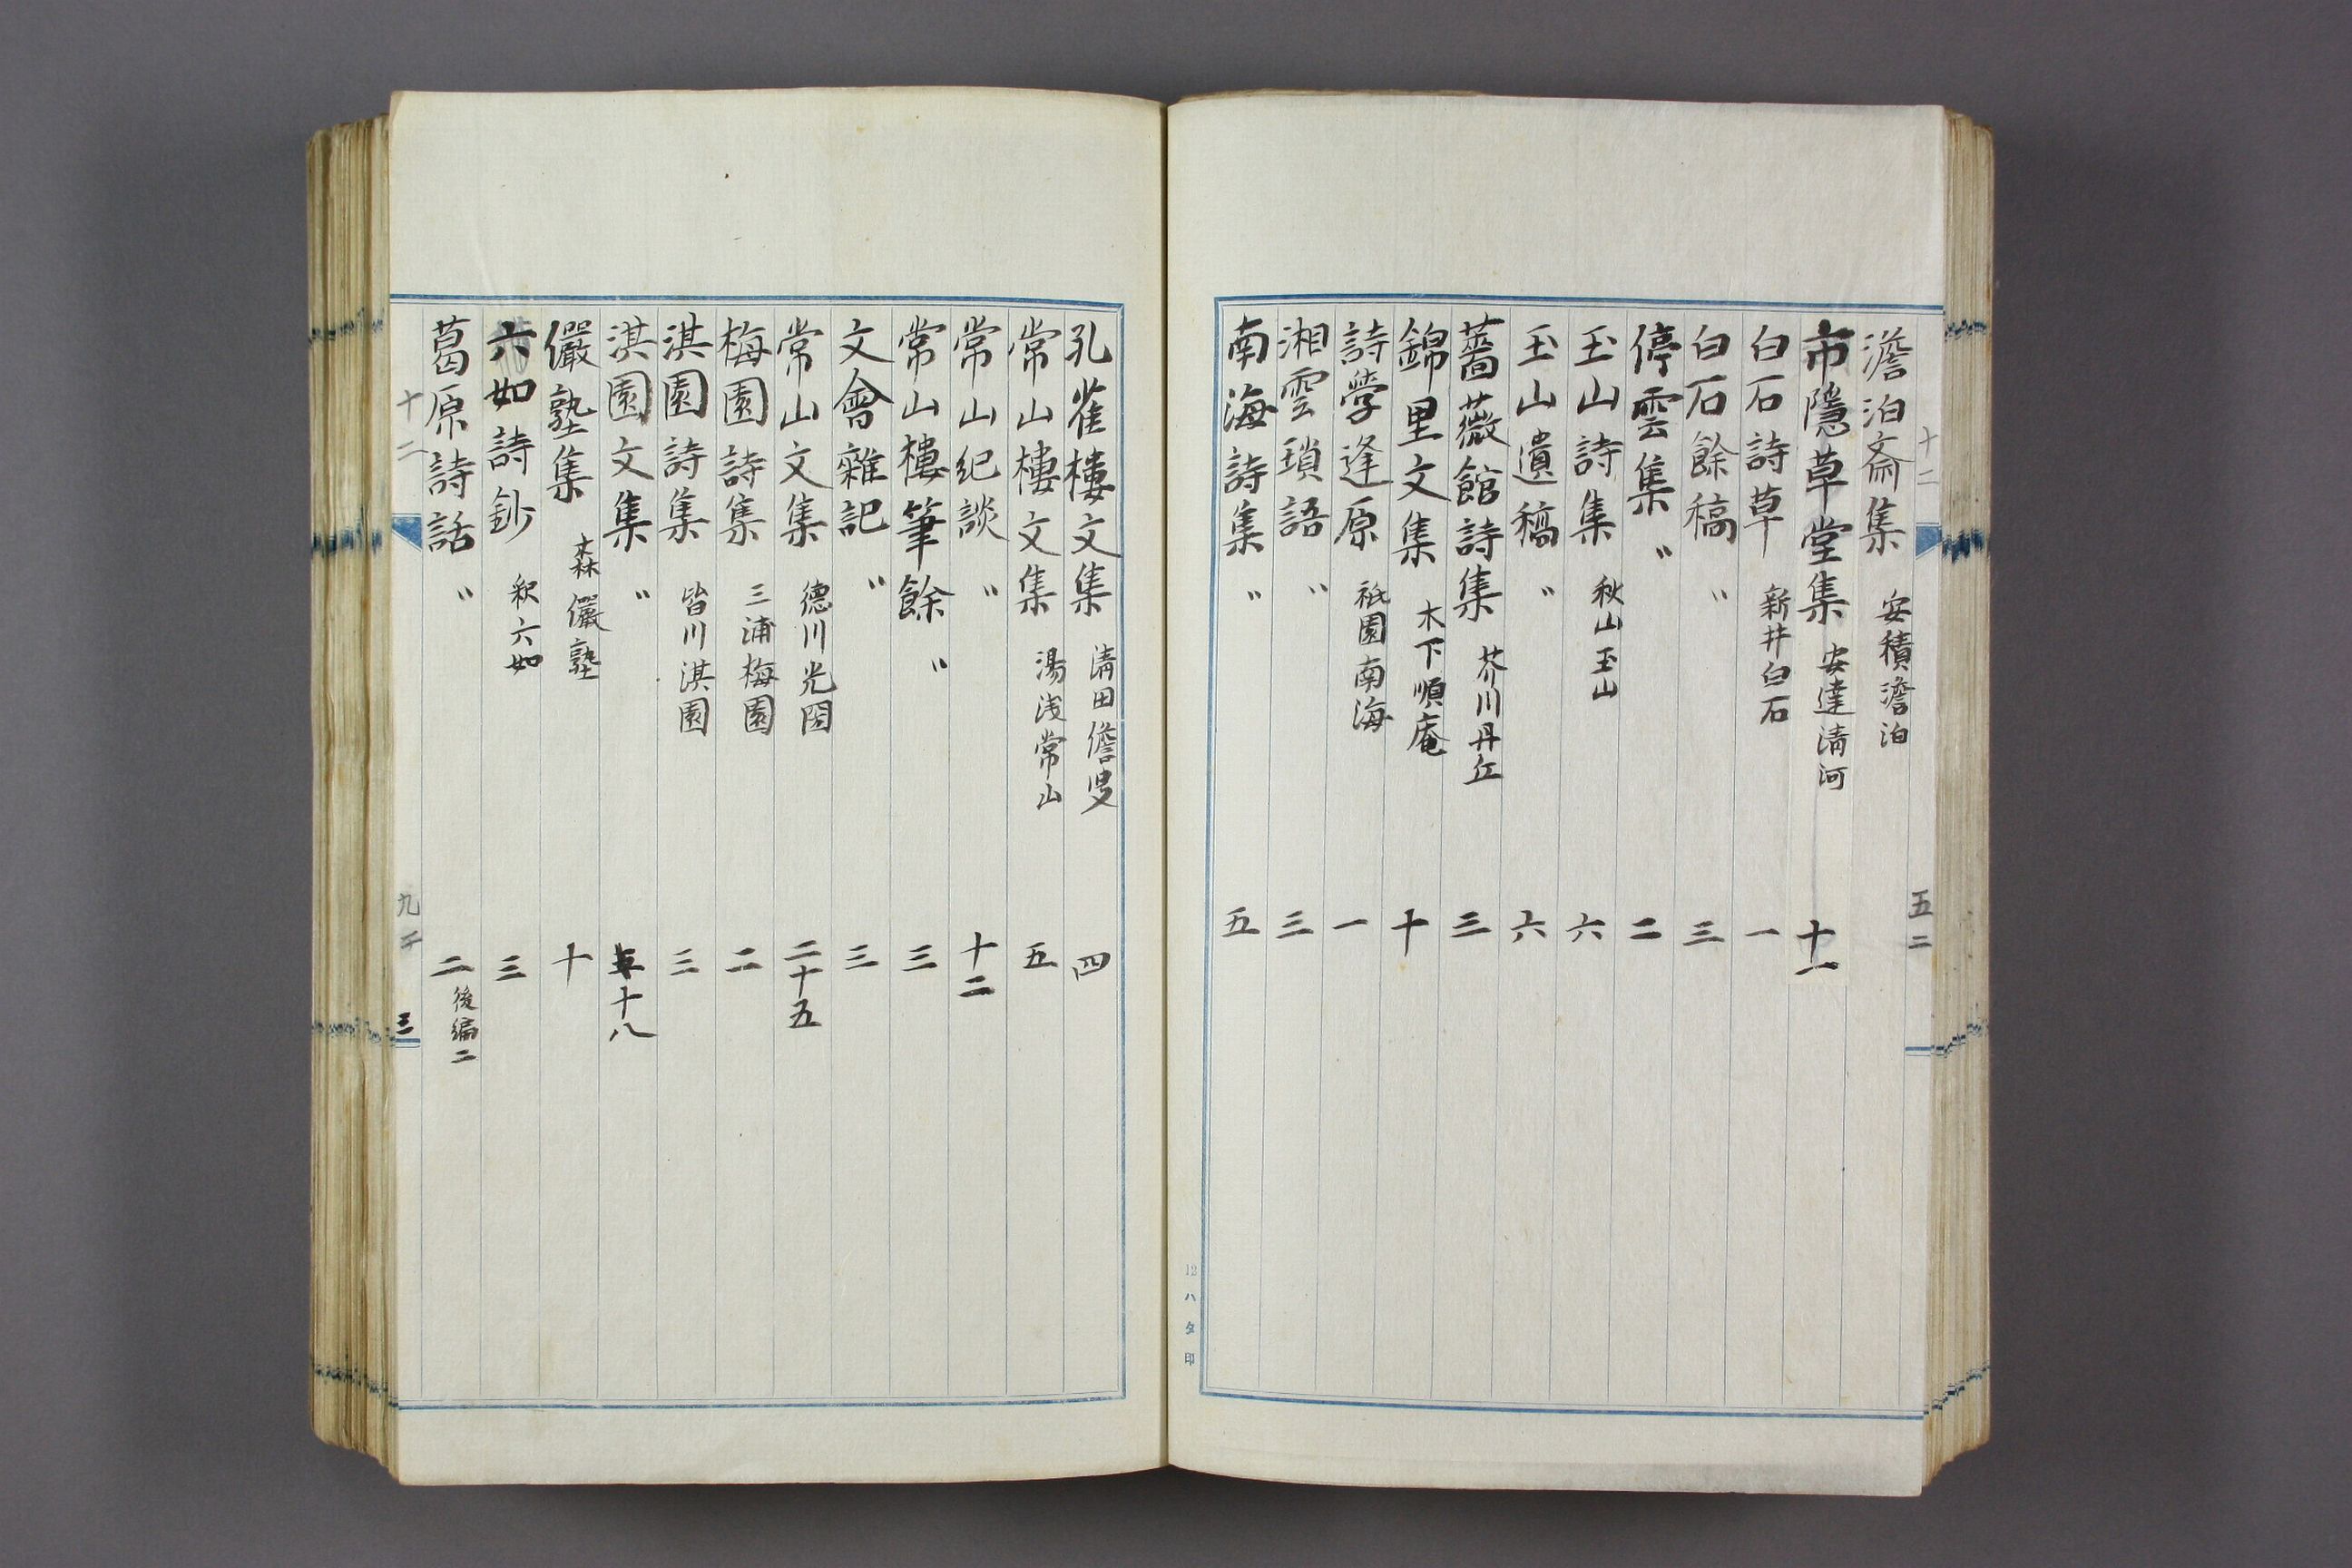 十二 五二
澹泊斎集 安積澹泊
市隱草堂集 安達清河 十一
白石詩草 新井白石 一
白石餘稿 〃 三
停雲集 〃 二
玉山詩集 秋山玉山 六
玉山遺稿 〃 六
薔薇館詩集 芥川丹丘 三
錦里文集 木下順庵 十
詩學逢原 祇園南海 一
湘雲瓚語 〃 三
南海詩集 〃 五
12ハタ印
孔雀樓文集 清田儋叟 四
常山樓文集 湯浅常山 五
常山紀談 〃 十二
常山樓筆餘 〃 三
文會雜記 〃 三
常山文集 德川光圀 二十五
梅園詩集 三浦梅園 二
淇園詩集 皆川淇園 三
淇園文集 〃 十八
儼塾集 森儼塾 十
六如詩鈔 釈六如 三
葛原詩話 〃 二 後編二
十二 九 三